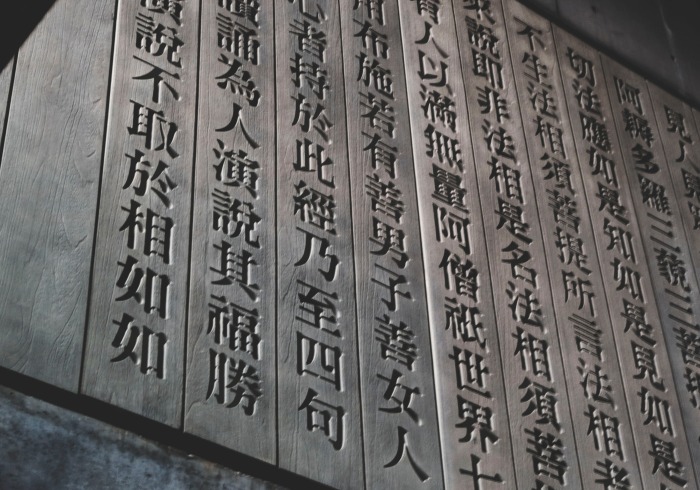 見人見
阿耨多羅三藐三菩
切法應如是知如是見如是
不生法相須菩提所言法相者
來說即非法相是名法相須菩
有人以滿無量阿僧祇世界
用布施若有善男子善女人
心者持於此經乃至四句
誦為人演說其福勝
演說不取於相如如